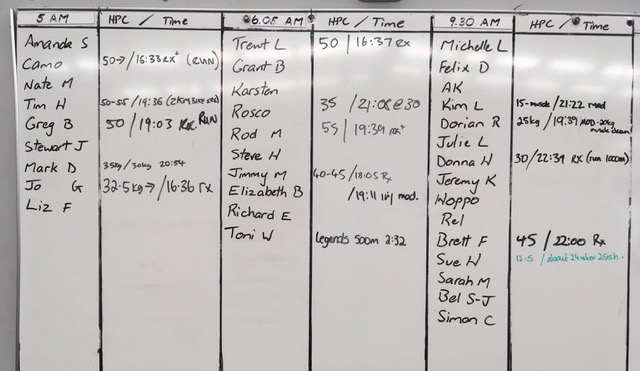 5 AM HPC / Time 6.05 AM HPC / Time 9.30 AM HPC / Time
Amanda S Trent L 50 / 16:37 Rx Michelle L
Camo 50→ / 16:33 RX+ (RUN) Grant B Felix D
Nate M Karsten AK
Tim H 50-55 / 19:36 (2KM BIKE Rx) Rosco 35 / 21:08 @ 30 Kim L 15-muscle / 21:22 mod
Greg B 50 / 19:03 Rx RUN Rod M 55 / 19:39 rx+ Dorian R 25kg / 19:39 MOD-20kg muscle clean
Stewart J Steve H Julie L
Mark D 35kg / 30kg 20:54 Jimmy M 40-45 / 18:05 Rx Donna H 30 / 22:39 RX (run 1000m)
Jo G 32.5kg→ / 16:36 rx Elizabeth B / 19:11 inj mod. Jeremy K
Liz F Richard E Hoppo
Rel
Toni W Legends 500m 2:32 Brett F 45 / 22:00 Rx
Sue W 12.5 / about 24
Sarah M
Bel S-J
Simon C